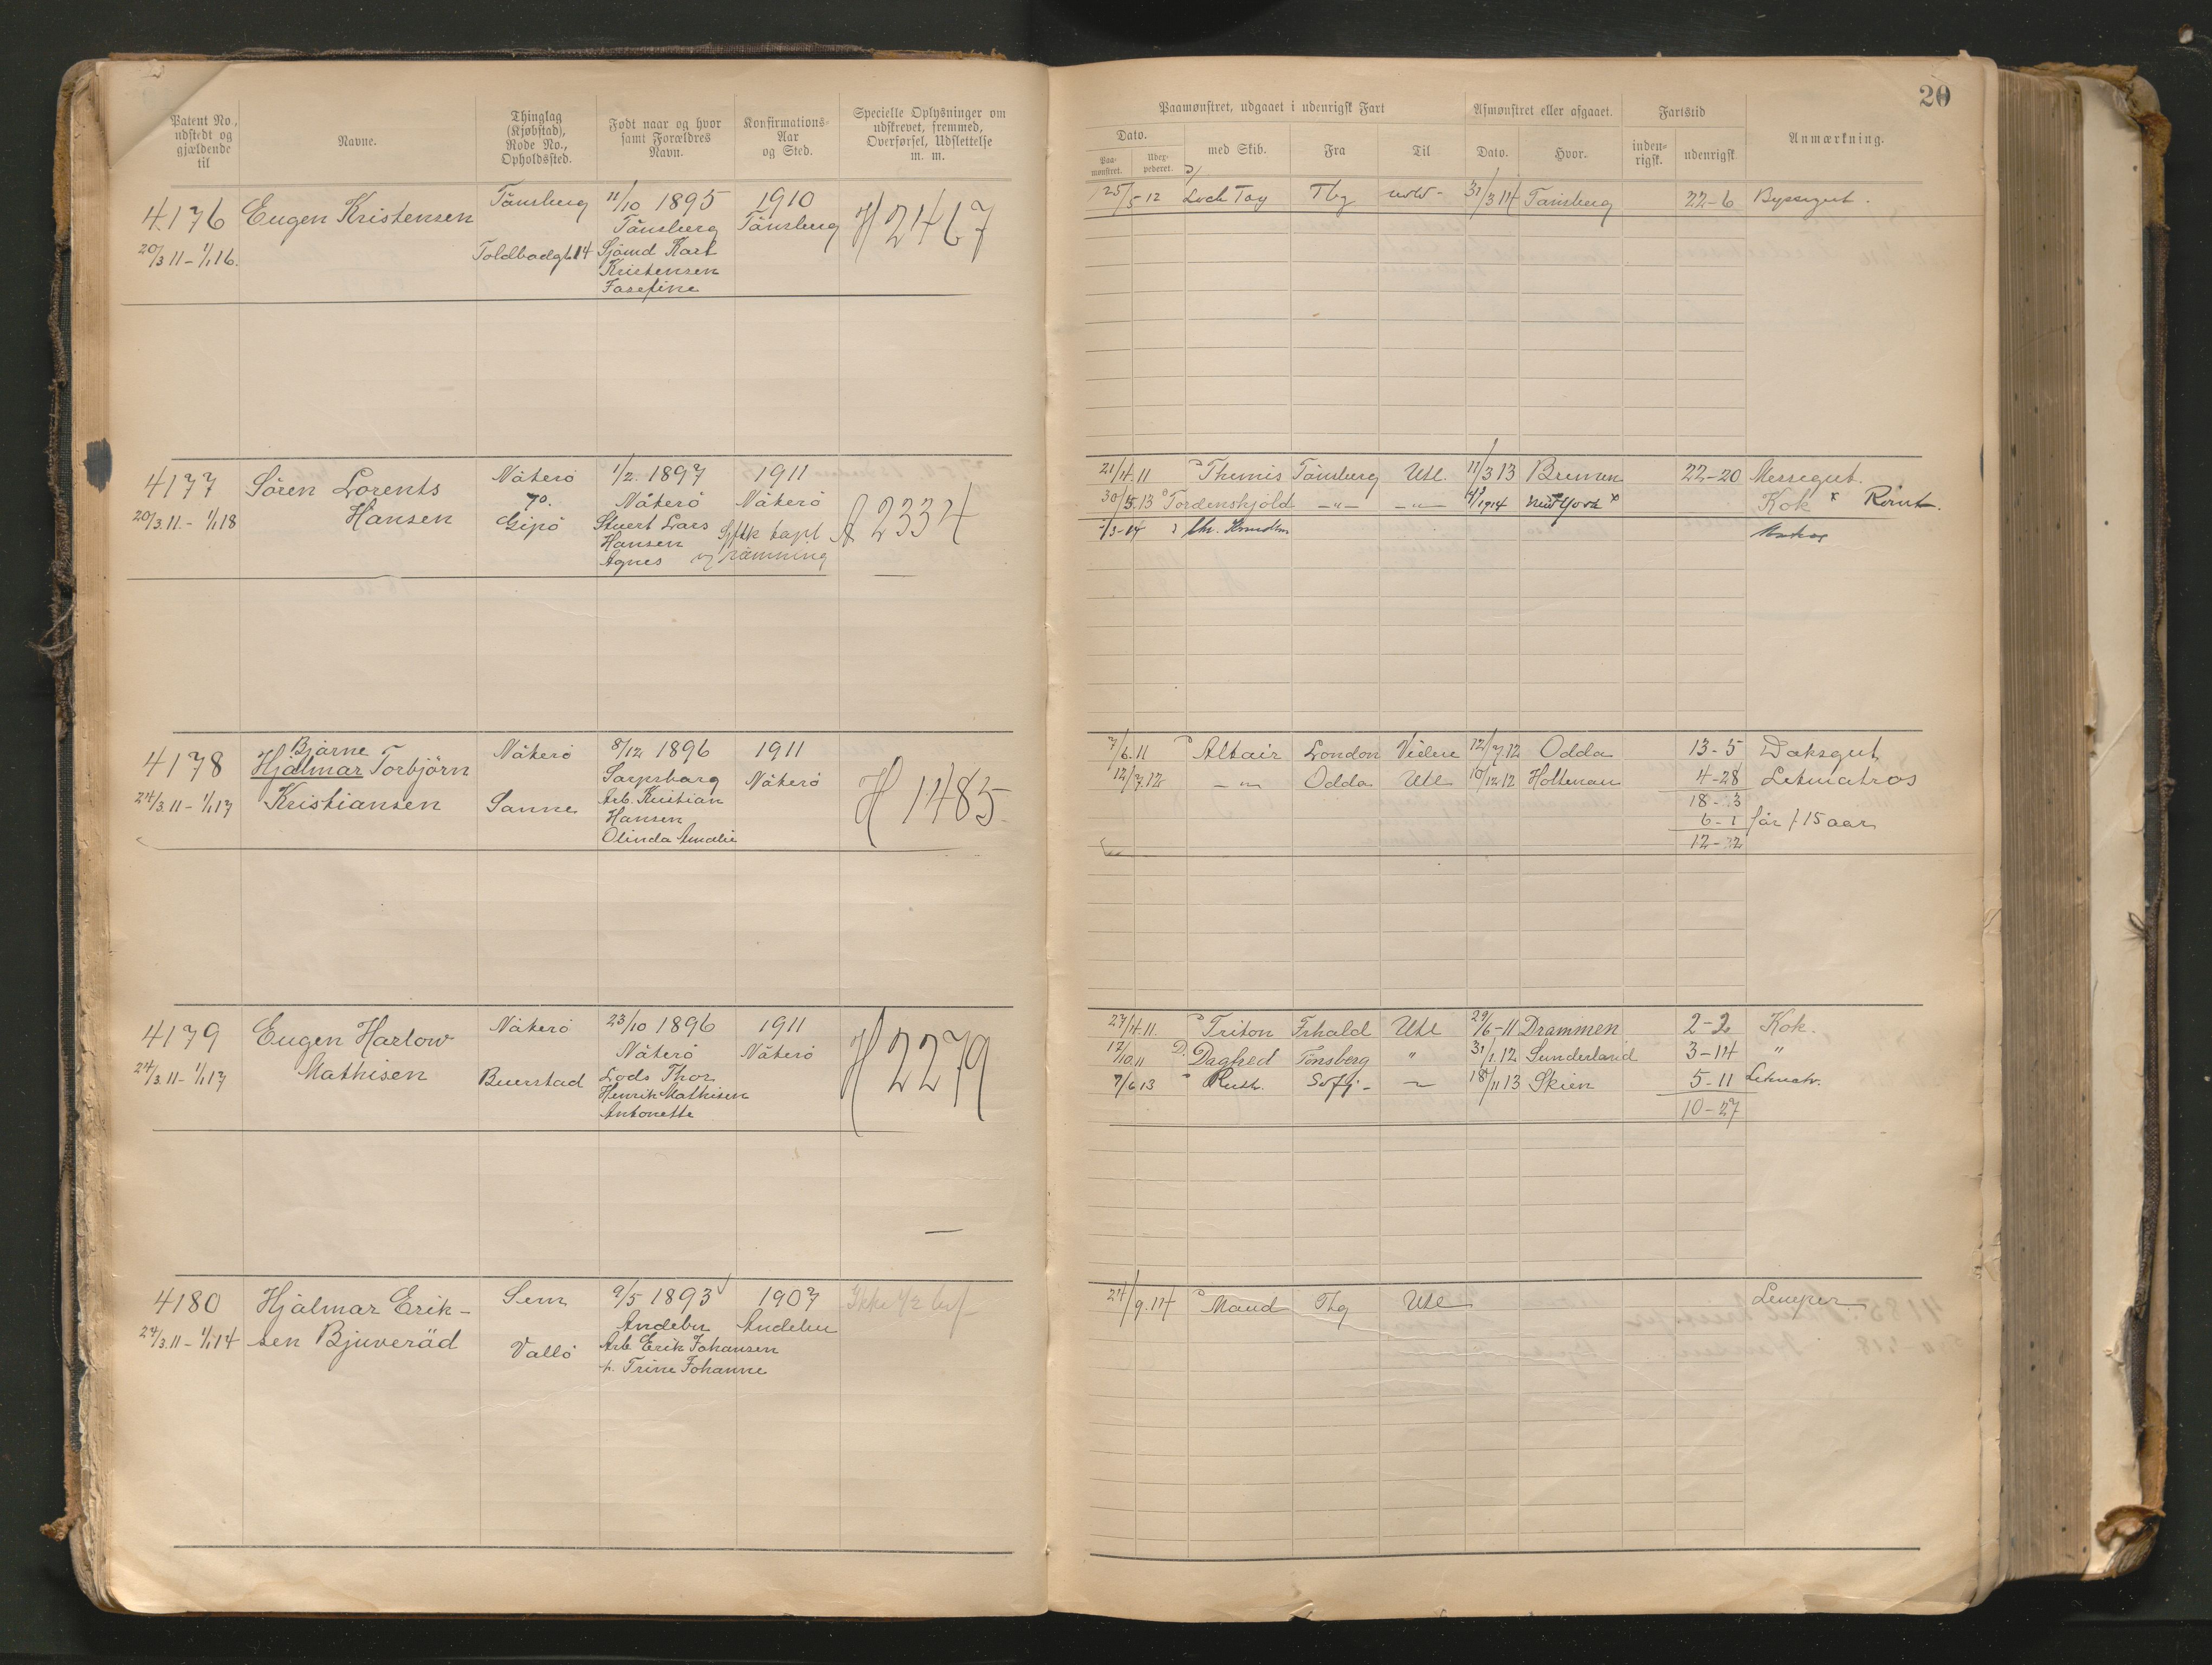 20
Patent No., udstedt og gjældende til
Navne.
Thinglag (Kjøbstad), Rode No., Opholdssted.
Født naar og hvor samt Forældres Navn.
Konfirmations-Aar og Sted.
Specielle Oplysninger om udskrevet, fremmed, Overførsel, Udslettelse m. m.
Paamønstret, udgaaet i udenrigsk Fart
Dato.
Paa-mønstret.
med Skib.
Fra
Til
Afmønstret eller afgaaet.
Dato.
Hvor.
Fartstid
inden-rigsk.
udenrigsk
Anmærkning.
4176 Eugen Kristensen Tönsberg 11/10 1895 1910 H 2467
20/3 11 – 1/1 16. Toldbodgt 14 Tönsberg Tönsberg
Sjömd Karl
Kristensen
Josefine
25/5 12 Loch Tay Tbg 31/3 14 Tönsberg 22-6 Byssegut.
4177 Sören Lorents Nøterö 1/2. 1897 1911
20/3.11. – 1/1 18 Hansen 70. Nøterö Nøterö A 2334
Gipö Stuert Lars
Hansen
Agnes
rømning
21/4.11 Themis Tönsberg Utl. 11/3 13 Bremen 22-20 Messegut.
30/5.13 Tordenskjold -"- -"- 1914 New York x Kok x Römt.
4178 Bjarne Nøterö 8/12 1896 1911
Hjalmar Torbjörn Sarpsborg Nøterö H 1485
24/3.11 – 1/1 17 Kristiansen Sanne Arb. Kristian
Hansen
Olinda Amalie
7/6.11 Altair London Videre 12/7.12 Odda 13-5 Daksgut
12/7.12 -"- Odda Utl 10/12 12 Holtenau 4-28 Letmatros
18-3
6-1 før f. 15 aar
12-22
4179 Eugen Harlow Nøterö 23/10 1896 1911 H 2279
24/3.11 – 1/1 17 Mathisen Buerstad Nøterö Nøterö
Lods Thor
Henrik Mathisen
Antonette
27/4 11. Triton Frhald Utl 29/6-11 Drammen 2-2 Kok.
12/10.11 D. Dagfred Tönsberg " 31/1.12 Sunderland 3-14 "
7/6.13 " Ruth. 18/11 13 Skien 5-11 Letmatr.
10-27
4180 Hjalmar Erik- Sem 9/5 1893 1907
24/3.11 – 1/1 14 sen Bjuveråd Vallö Andebu Andebu
Arb Erik Johansen
h. Trine Johanne
24/9.14 Maud Tbg Utl Lemper